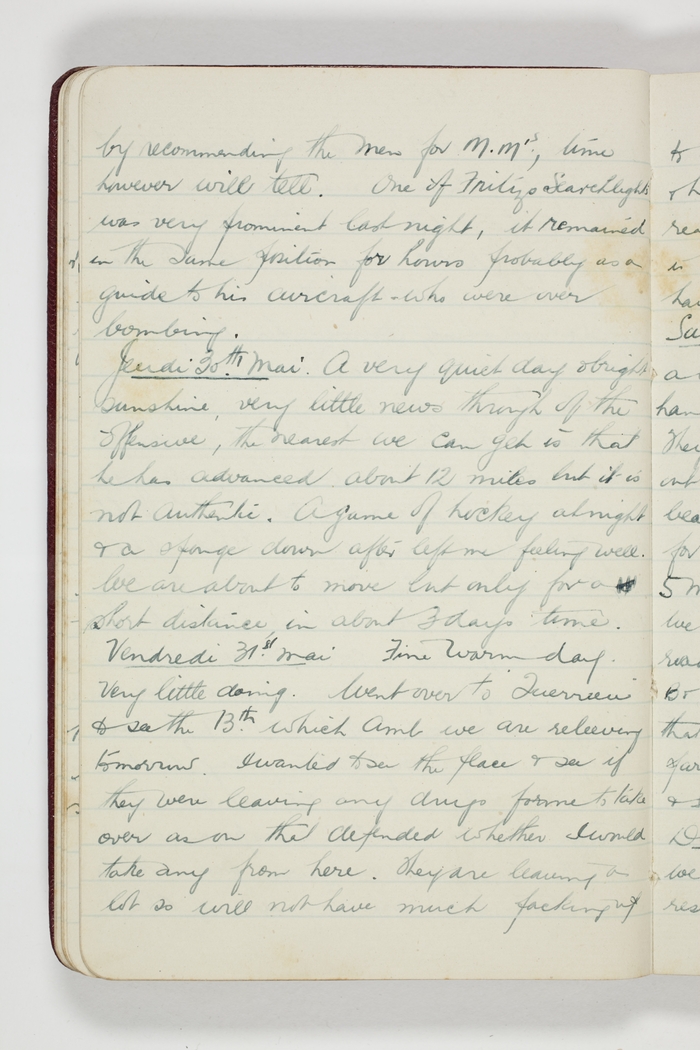 by recommending the men for M.M's, time
however will tell. One of Fritizs Searchlights
was very prominent last night, it remained
in the same position for hours probably as a
guide to his aircraft - who were over
bombing.
Jeudi 30th Mai. A very quiet day & bright
sunshine, very little news through of the
Offensive, the nearest we can get is that
he has advanced about 12 miles but it is
not authentic. A game of hockey at night
& a sponge down after left me feeling well.
We are about to move but only for a
short distance, in about 3 days time.
Vendredi 31st Mai Fine warm day.
Very little doing. Went over to
to see the 13th which Amb we are releeving
tomorrow. I wanted to see the place & see if
they were leaving any drugs for me to take
over as on that depended whether I would
take any from here. They are leaving a
lot so will not have much packing up
to
in
Sa
a
han
They
out
bea
for
5
we
that
we
res